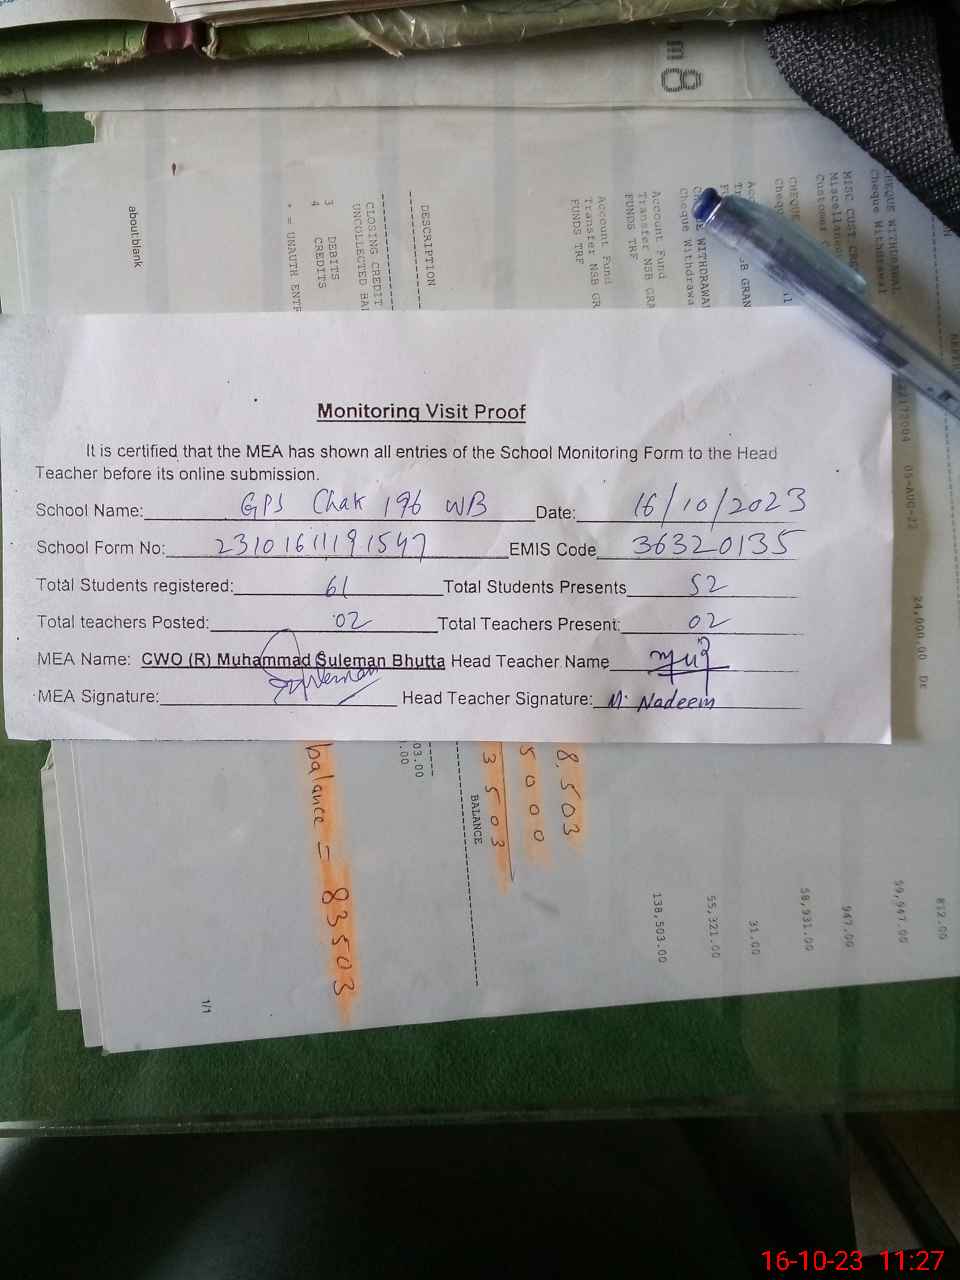 m8
HEQUE WITHDRAWAL
Cheque Withdrawal
MISC CUST CRED
Miscellaneou
Customer
CHEQUE
Cheque
Account Fund
Transfer NSB GRA
FUNDS TRF
Account Fund
Transfer NSB GR
FUNDS TRF
DESCRIPTION
CLOSING CREDIT
UNCOLLECTED BAL
3 DEBITS
4 CREDITS
* = UNAUTH ENTR
about:blank
05-AUG-22
24,000.00 DR
Monitoring Visit Proof
It is certified that the MEA has shown all entries of the School Monitoring Form to the Head
Teacher before its online submission.
School Name: GPS Chak 196 WB Date: 16/10/2023
School Form No: 23101611191547 EMIS Code 36320135
Total Students registered: 61 Total Students Presents 52
Total teachers Posted: 02 Total Teachers Present: 02
MEA Name: CWO (R) Muhammad Suleman Bhutta Head Teacher Name
MEA Signature: Suleman Head Teacher Signature: M. Nadeem
8,503
5000
3503
balance = 83503
BALANCE
812.00
59,947.00
947.00
58,931.00
31.00
55,321.00
138,503.00
1/1
16-10-23 11:27